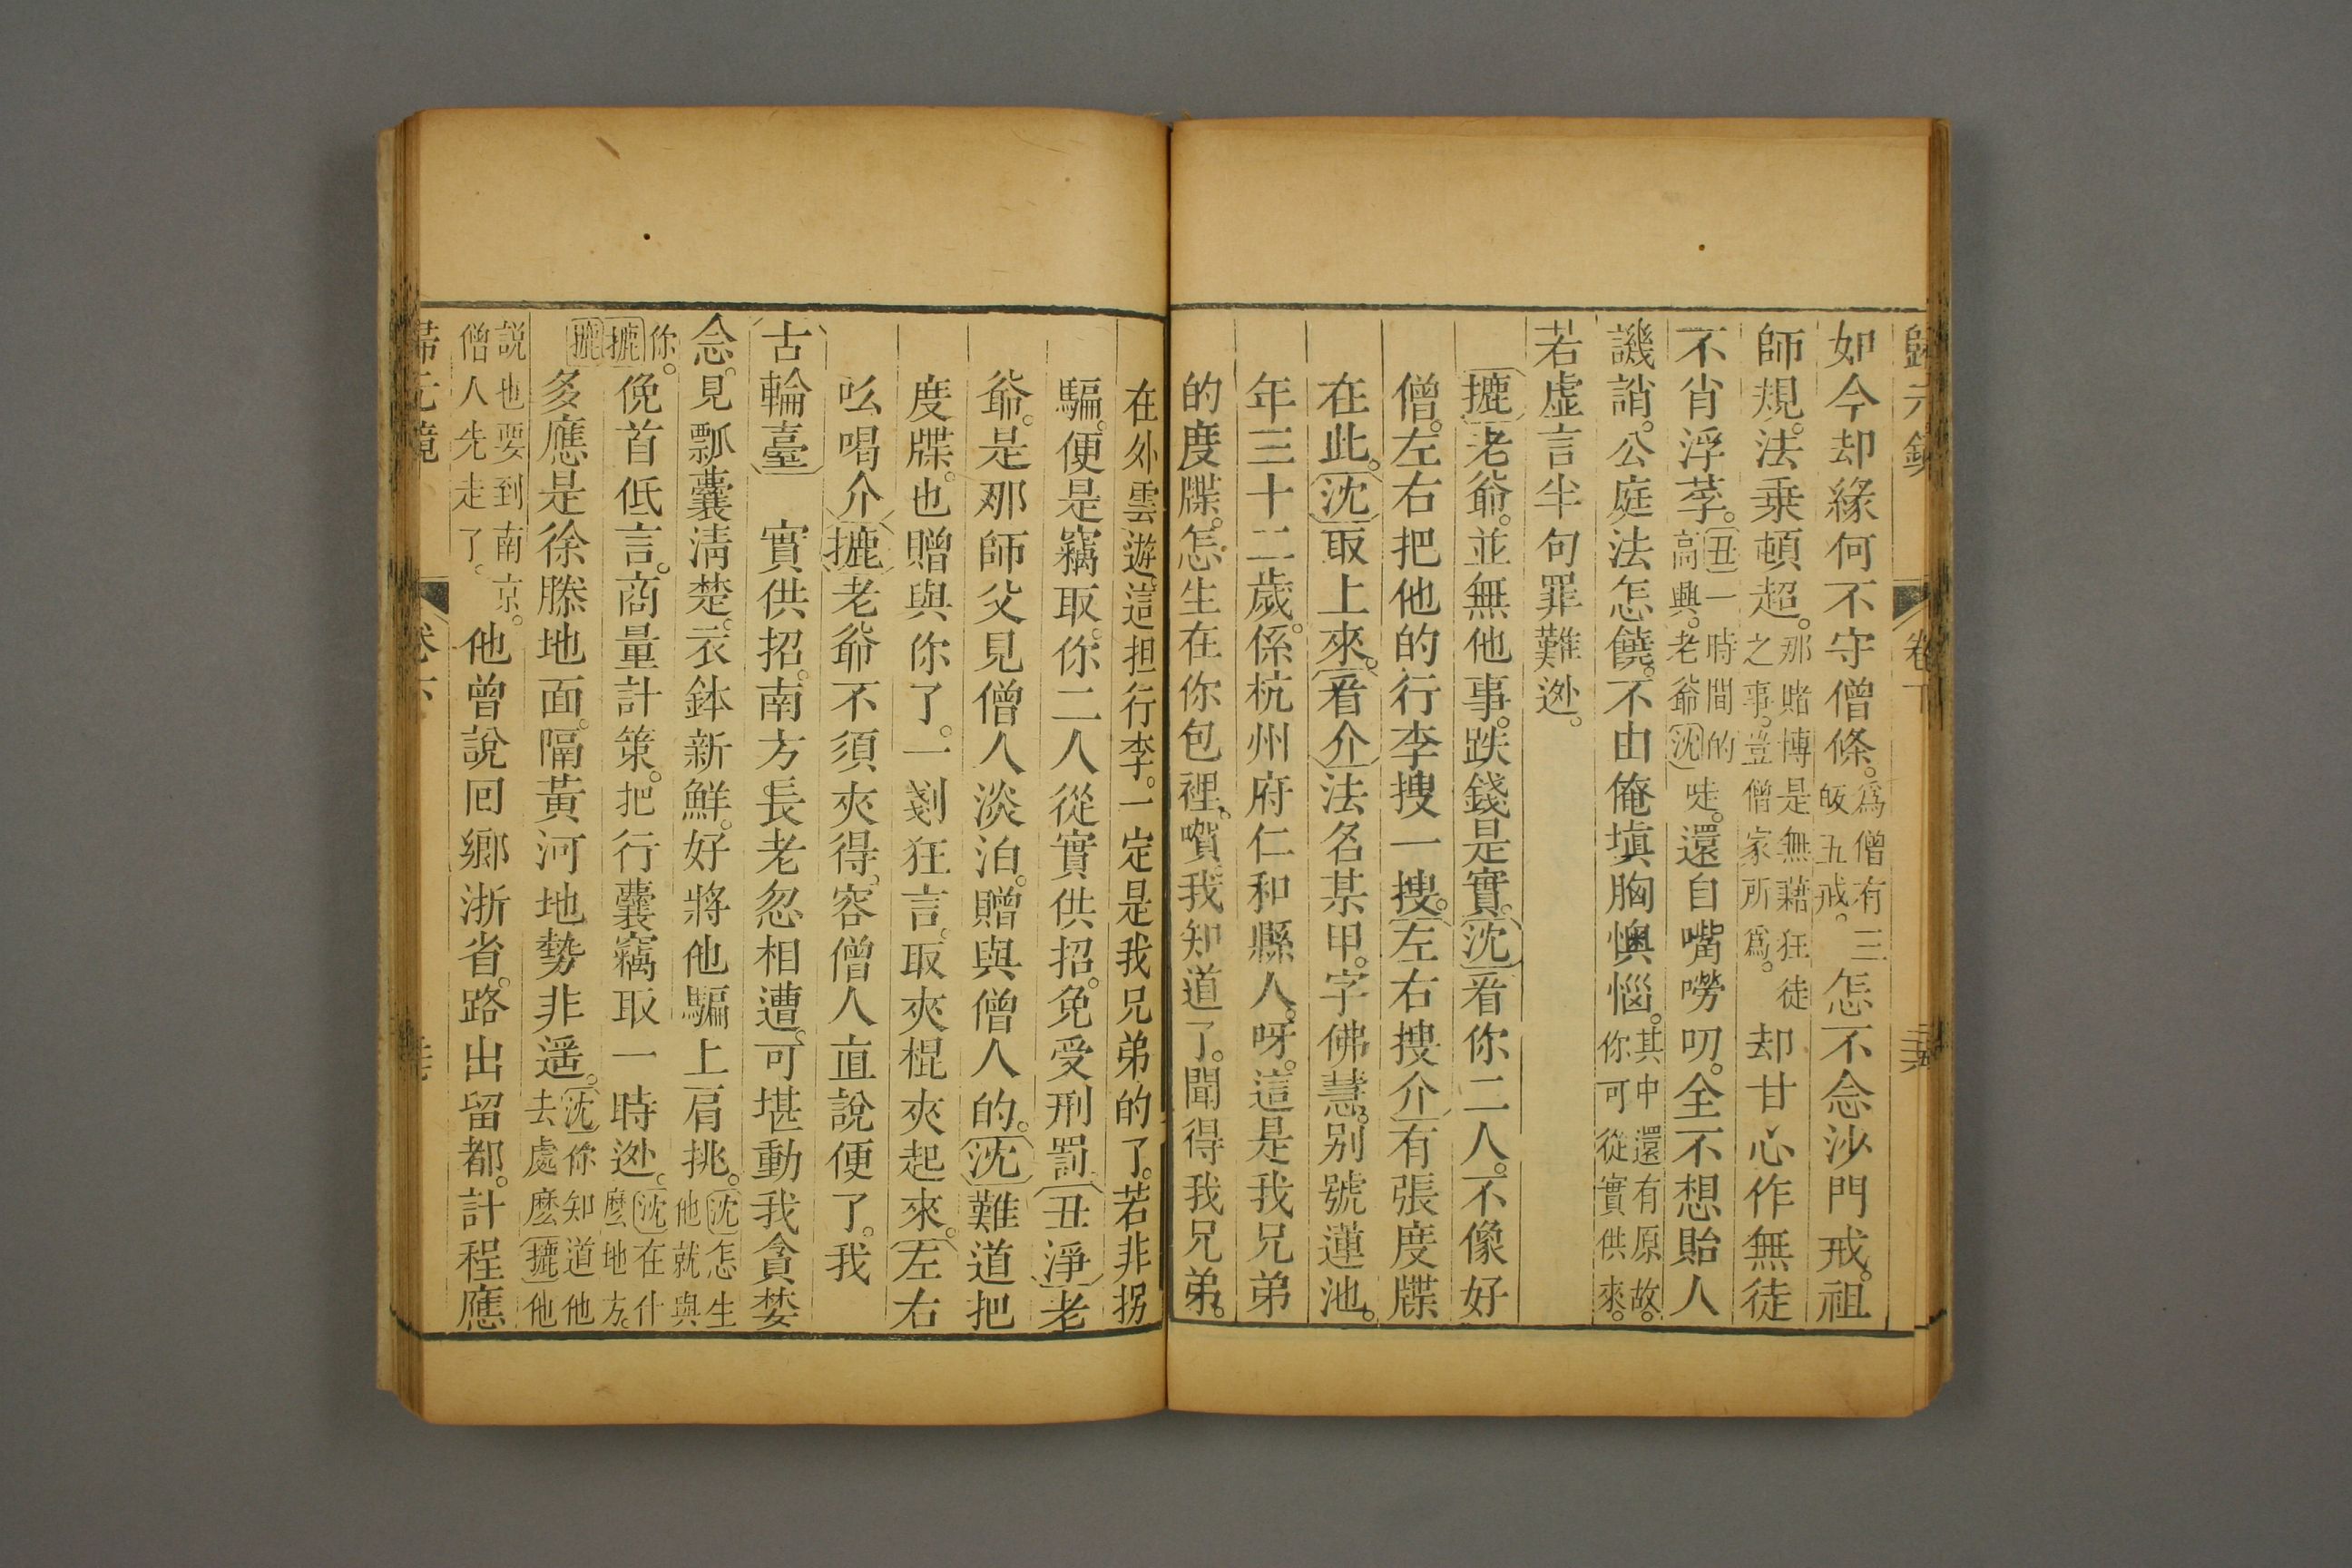 歸元鏡 卷下
如今却緣何不守僧條。爲僧有三皈五戒。怎不念沙門戒。祖
師規。法乗頓超。那賭博是無藉狂徒之事。豈僧家所爲。却甘心作無徒
不肖浮莩。丑一時間的高興。老爺沈唗。還自嘴嘮叨。全不想貽人
譏誚。公庭法怎饒。不由俺塡胸懊惱。其中還有原故。你可從實供來。
若虚言半句罪難逊。
摭老爺。並無他事。跌錢是實。沈看你二人。不像好
僧。左右把他的行李搜一搜。左右搜介有張度牒
在此。沈取上來。看介法名某甲。字佛慧。别號蓮池。
年三十二歲。係杭州府仁和縣人。呀。這是我兄弟
的度牒。怎生在你包裡。嗄我知道了。聞得我兄弟。
在外雲遊。這担行李。一定是我兄弟的了。若非拐
騙。便是竊取。你二人從實供招。免受刑罰丑淨老
爺。是那師父見僧人淡泊。贈與僧人的。沈難道把
度牒。也贈與你了。一剗狂言。取夾棍夾起來。左右
吆喝介摭老爺不須夾得。容僧人直說便了。我
古輪臺 實供招。南方長老忽相遭。可堪動我貪婪
念。見瓢囊淸楚。衣鉢新鮮。好將他騙上肩挑。沈怎生他就與
你。摭俛首低言。商量計策。把行囊竊取一時逊。沈在什麽地方。
摭多應是徐滕地面。隔黃河地勢非遥。沈你知道他去處麽摭他
説也要到南京。僧人先走了。他曾說回鄉浙省。路出留都。計程應
歸元鏡 卷下